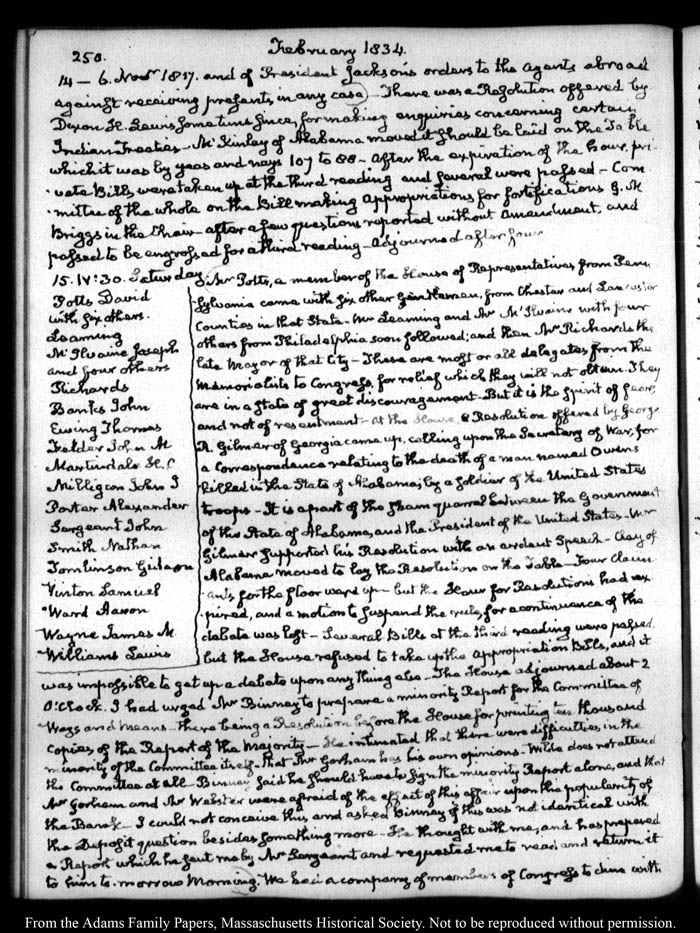 250.
February 1834.
14 — 6. Novr 1817. and of President Jackson's orders to the Agents abroad
against receiving presents, in any case) — There was a Resolution offered by
Dixon H. Lewis sometime since, for making enquiries concerning certain
Indian Treaties — Mr McKinley of Alabama moved it should be laid on the Table
which it was by yeas and nays 107 to 88 — After the expiration of the hour, pri-
-vate Bills were taken up at the third reading and several were passed — Com
-mittee of the whole on the Bill making appropriations for fortifications G. N.
Briggs in the Chair — after a few questions reported without Amendment, and
passed to be engrossed for a third reading — Adjourned after four
15. IV:30. Saturday.
Potts David
with six others.
Leaming
McIlvaine Joseph
and four others
Richards
Banks John
Ewing Thomas
Felder John M
Martindale H. C
Milligan John J
Porter Alexander
Sergeant John
Smith Nathan
Tomlinson Gideon
Vinton Samuel
Ward Aaron
Wayne James M.
Williams Lewis
Mr Potts, a member of the House of Representatives, from Penn
-sylvania came with six other Gentlemen, from Chester and Lancaster
Counties in that State — Mr Leaming and Mr McIlvaine with four
others from Philadelphia soon followed; and then Mr Richards the
late Mayor of that City — These are most or all delegates from the
Memorialists to Congress, for relief which they will not obtain. They
are in a state of great discouragement — But it is the spirit of fear,
and not of resentment — At the House, a Resolution offered by George
R. Gilmer of Georgia came up, calling upon the Secretary of War, for
a Correspondence relating to the death of a man named Owens
killed in the State of Alabama, by a soldier of the United States
troops — It is a part of the sham quarrel between the Government
of the State of Alabama, and the President of the United States — Mr
Gilmer supported his Resolution with an ardent Speech — Clay of
Alabama moved to lay the Resolution on the Table — Four Claim
-ants for the floor were up — but the Hour for Resolutions had ex
-pired, and a motion to suspend the rule, for a continuance of the
debate was lost — Several Bills at the third reading were passed,
but the House refused to take up the appropriation Bills, and it
was impossible to get up a debate upon any thing else — The House adjourned about 2
O'Clock. I had urged Mr Binney to prepare a minority Report for the Committee of
Ways and Means — there being a Resolution before the House for printing ten thousand
copies of the Report of the Majority — He intimated that there were difficulties in the
minority of the Committee itself — that Mr Gorham has his own opinions — Wilde does not attend
the Committee at all — Binney said he should have to sign the minority Report alone, and that
Mr Gorham and Mr Webster were afraid of the effect of this affair upon the popularity of
the Bank — I could not conceive this, and asked Binney if this was not identical with
the Deposit question besides something more — He thought with me, and has prepared
a Report which he sent me by Mr Sergeant and requested me to read and return it
to him to-morrow Morning. We had a company of members of Congress to dine with
From the Adams Family Papers, Massachusetts Historical Society. Not to be reproduced without permission.